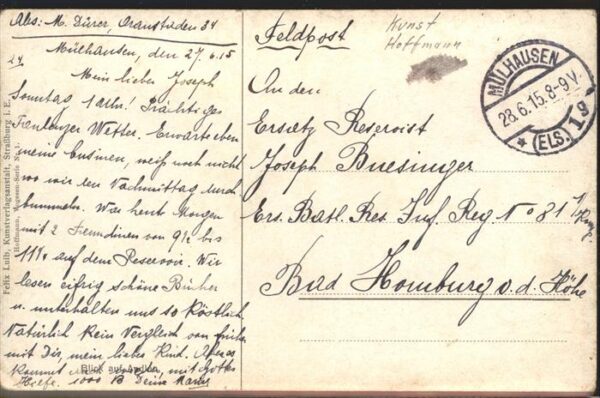 Abs: M. Dürer, Oranstaden 34
Mülhausen, den 27.6.15
Mein lieber Joseph
Sonntag 1 Uhr! Prächtiges
Wetter. Erwarte eben
meine Cusinen, weiß noch nicht
wo wir den Nachmittag durch
bummeln. War heut Morgen
mit 2 Freundinen von 9½ bis
11¼ auf dem Reservoir. Wir
lesen eifrig schöne Bücher
u. unterhalten uns so köstlich.
Natürlich kein Vergleich von früher
mit Dir, mein lieber Kind.
kommt mit Gottes
Hilfe. 1000 B Deine
Blick auf
Felix Luib, Kunstverlagsanstalt, Straßburg i. E.
Hoffmann, Vogesen-Serie No. 1.
Feldpost
Kunst
Hoffmann
MÜLHAUSEN
28.6.15.8-9V.
* (ELS.) 1g
An den
Ersatz Reservist
Joseph Buesinger
Ers. Batl. Res. Inf. Reg No 81
Bad Homburg v. d. Höhe